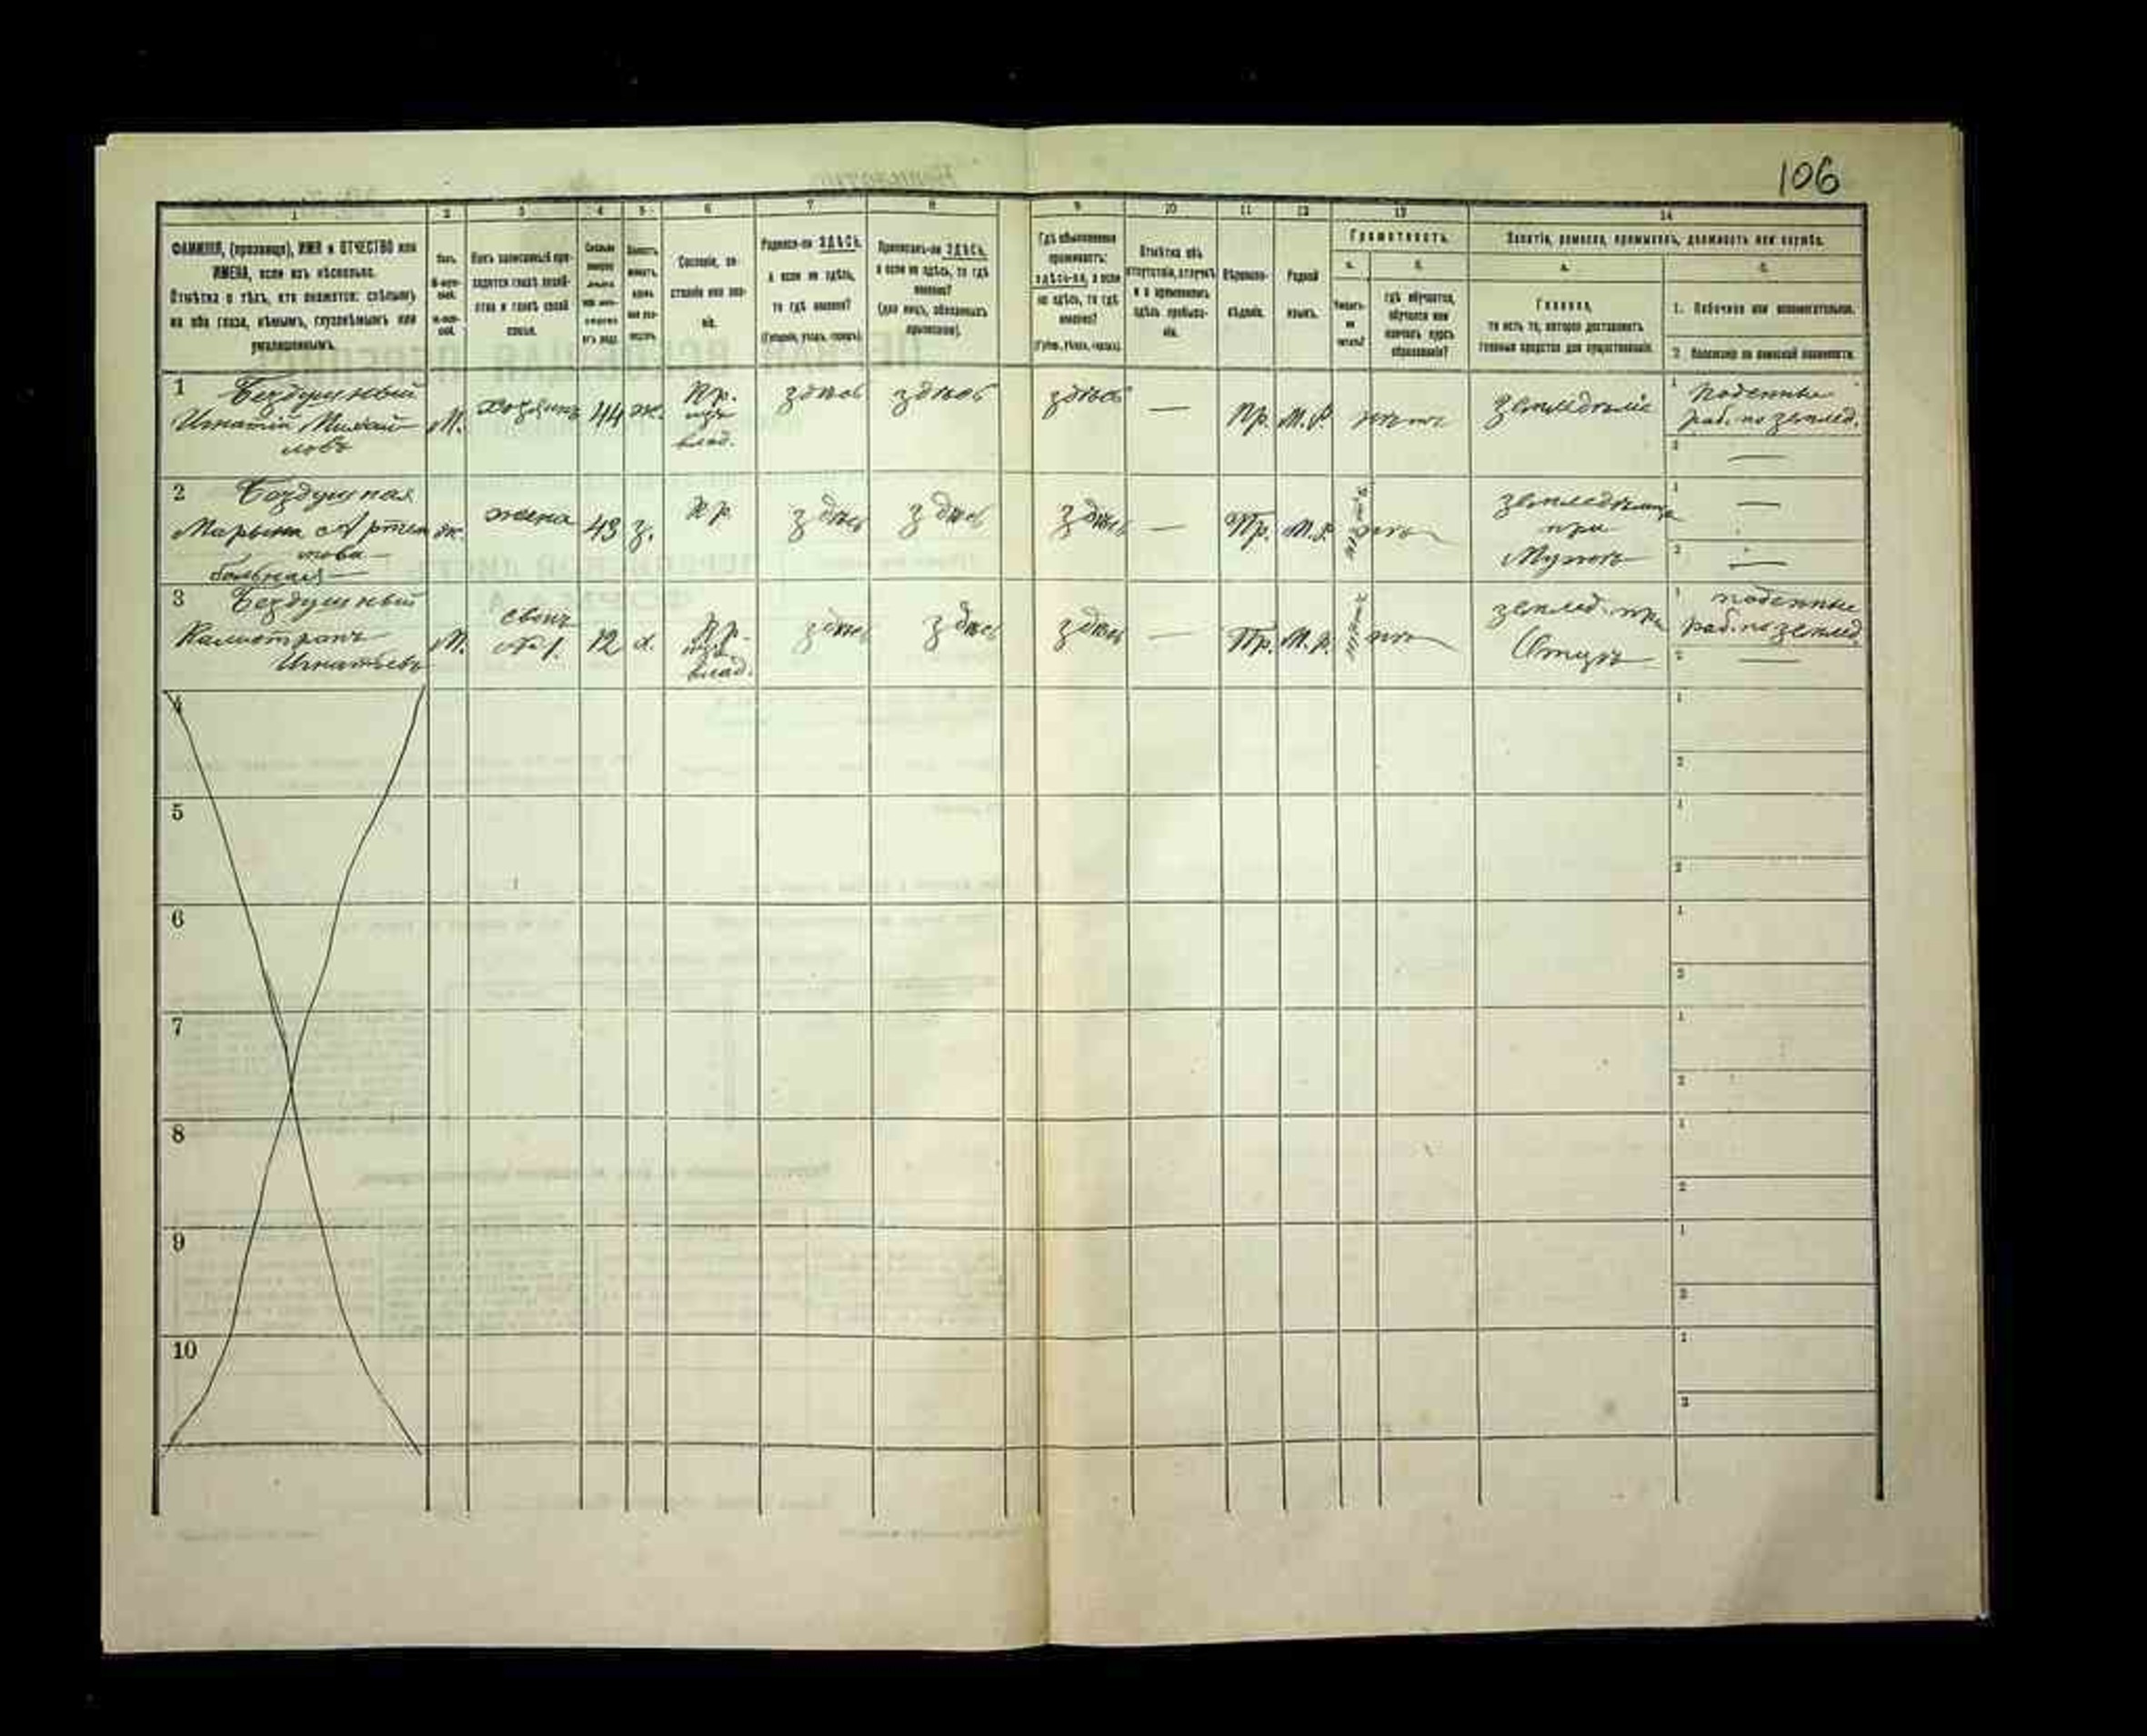 106
1 2 3 4 5 6 7 8 9 10 11 12 13 14
ФАМИЛІЯ, (прозвище), ИМЯ и ОТЧЕСТВО или
ИМЕНА, если ихъ нѣсколько.
Отмѣтка о тѣхъ, кто окажется: слѣпымъ
на оба глаза, нѣмымъ, глухонѣмымъ или
умалишеннымъ.
Полъ.
Какъ записанный при-
ходится главѣ хозяй-
ства и главѣ своей
семьи.
Сословіе, со-
стояніе или зва-
ніе.
Родился-ли ЗДѢСЬ,
а если не здѣсь,
то гдѣ именно?
(Губернія, уѣздъ, городъ).
Приписанъ-ли ЗДѢСЬ,
а если не здѣсь, то гдѣ
именно?
(для лицъ, обязанныхъ
припискою).
Гдѣ обыкновенно
проживаетъ:
здѣсь-ли, а если
не здѣсь, то гдѣ
именно?
(Губер., уѣздъ, городъ).
Отмѣтка объ
отсутствіи, отлучкѣ
и о временномъ
здѣсь пребыва-
ніи.
Вѣроиспо-
вѣданіе.
Родной
языкъ.
Грамотность.
а. б.
Умѣетъ-
ли
читать?
гдѣ обучается,
обучался или
кончилъ курсъ
образованія?
Занятіе, ремесло, промыселъ, должность или служба.
а. б.
Главное,
то есть то, которое доставляетъ
главныя средства для существованія.
1. Побочное или вспомогательное.
2. Положеніе по воинской повинности.
1 Бездушный
Игнатій Михай-
ловъ
М. хозяинъ 44 ж.
Кр.
изъ
влад.
здѣсь здѣсь здѣсь — Пр. М.Р. нѣтъ земледѣліе
1 Поденные
раб. по землед.
2 —
2 Бездушная
Марьяна Артем
това
больная
ж. жена 43 з. Кр. здѣсь здѣсь здѣсь — Пр. М.Р. нѣтъ
при
Мужѣ
1 —
2 —
3 Бездушный
Калистратъ
Игнатьевъ
М.
сынъ
№ 1.
12 х.
Кр.
изъ
влад.
здѣсь здѣсь здѣсь — Пр. М.Р. нѣтъ
землед. при
Отцѣ
1 поденные
раб. по землед
2 —
4 1
2
5 1
2
6 1
2
7 1
2
8 1
2
9 1
2
10 1
2